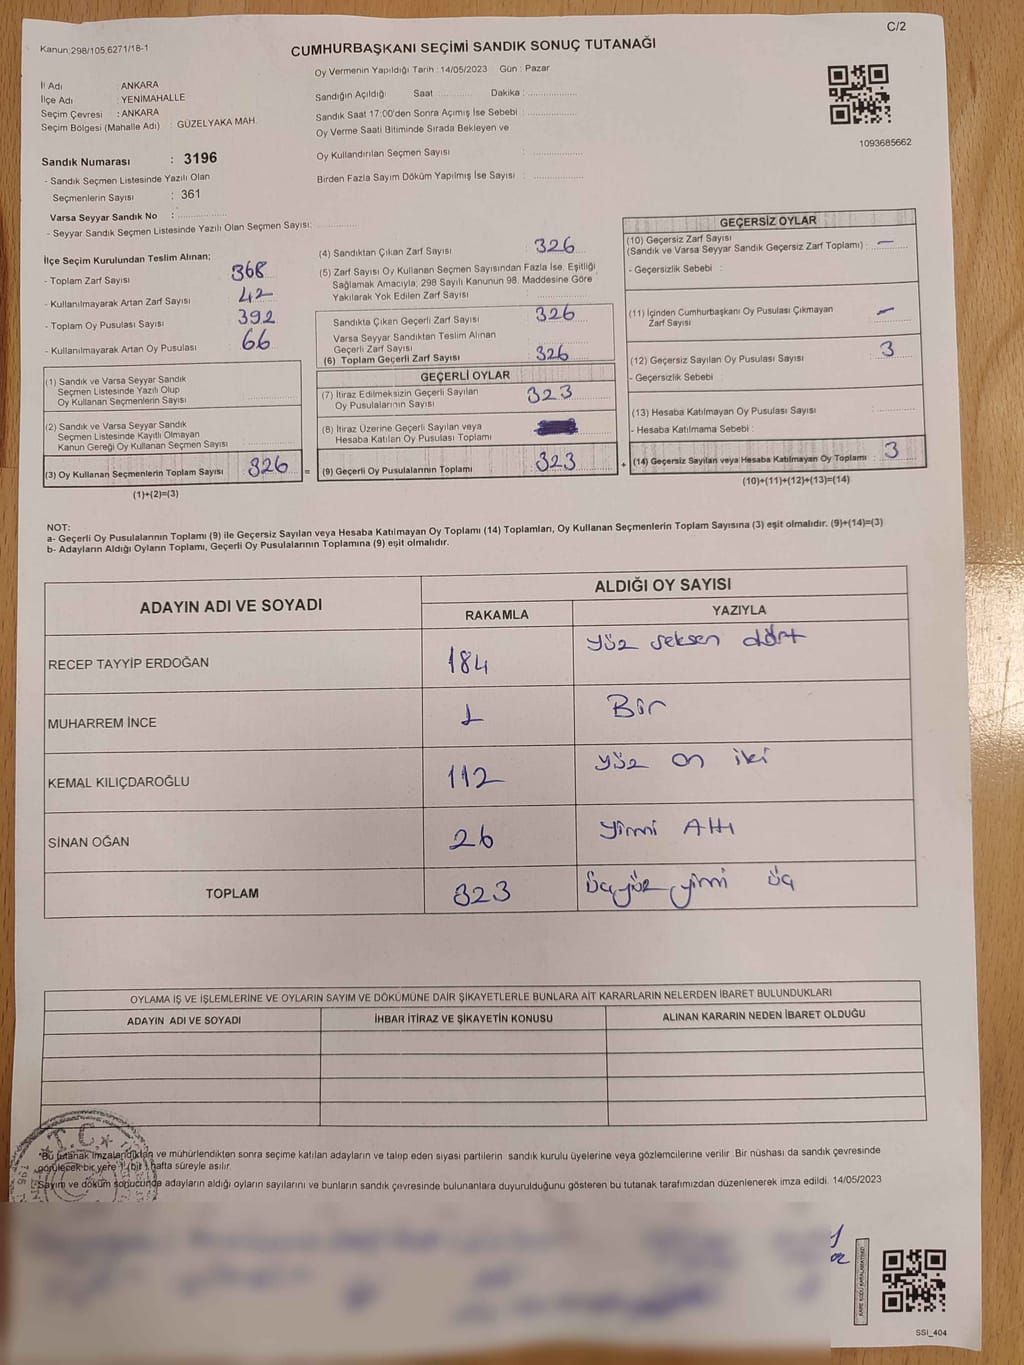 C/2
Kanun:298/105,6271/18-1
CUMHURBAŞKANI SEÇİMİ SANDIK SONUÇ TUTANAĞI
Oy Vermenin Yapıldığı Tarih : 14/05/2023 Gün : Pazar
İl Adı : ANKARA
İlçe Adı : YENİMAHALLE
Seçim Çevresi : ANKARA
Seçim Bölgesi (Mahalle Adı) : GÜZELYAKA MAH.
Sandığın Açıldığı Saat : Dakika :
Sandık Saat 17:00'den Sonra Açımış İse Sebebi :
Oy Verme Saati Bitiminde Sırada Bekleyen ve
Oy Kullandırılan Seçmen Sayısı :
Birden Fazla Sayım Döküm Yapılmış İse Sayısı :
1093685662
Sandık Numarası : 3196
- Sandık Seçmen Listesinde Yazılı Olan
Seçmenlerin Sayısı : 361
Varsa Seyyar Sandık No :
- Seyyar Sandık Seçmen Listesinde Yazılı Olan Seçmen Sayısı:
İlçe Seçim Kurulundan Teslim Alınan;
- Toplam Zarf Sayısı 368
- Kullanılmayarak Artan Zarf Sayısı 42
- Toplam Oy Pusulası Sayısı 392
- Kullanılmayarak Artan Oy Pusulası 66
(1) Sandık ve Varsa Seyyar Sandık
Seçmen Listesinde Yazılı Olup
Oy Kullanan Seçmenlerin Sayısı
(2) Sandık ve Varsa Seyyar Sandık
Seçmen Listesinde Kayıtlı Olmayan
Kanun Gereği Oy Kullanan Seçmen Sayısı
(3) Oy Kullanan Seçmenlerin Toplam Sayısı 326 =
(1)+(2)=(3)
(4) Sandıktan Çıkan Zarf Sayısı 326
(5) Zarf Sayısı Oy Kullanan Seçmen Sayısından Fazla İse, Eşitliği
Sağlamak Amacıyla; 298 Sayılı Kanunun 98. Maddesine Göre
Yakılarak Yok Edilen Zarf Sayısı
Sandıkta Çıkan Geçerli Zarf Sayısı 326
Varsa Seyyar Sandıktan Teslim Alınan
Geçerli Zarf Sayısı
(6) Toplam Geçerli Zarf Sayısı 326
GEÇERLİ OYLAR
(7) İtiraz Edilmeksizin Geçerli Sayılan
Oy Pusulalarının Sayısı 323
(8) İtiraz Üzerine Geçerli Sayılan veya
Hesaba Katılan Oy Pusulası Toplamı
(9) Geçerli Oy Pusulalarının Toplamı 323 +
GEÇERSİZ OYLAR
(10) Geçersiz Zarf Sayısı
(Sandık ve Varsa Seyyar Sandık Geçersiz Zarf Toplamı) : –
- Geçersizlik Sebebi :
(11) İçinden Cumhurbaşkanı Oy Pusulası Çıkmayan
Zarf Sayısı : –
(12) Geçersiz Sayılan Oy Pusulası Sayısı 3
- Geçersizlik Sebebi :
(13) Hesaba Katılmayan Oy Pusulası Sayısı :
- Hesaba Katılmama Sebebi :
(14) Geçersiz Sayılan veya Hesaba Katılmayan Oy Toplamı 3
(10)+(11)+(12)+(13)=(14)
NOT:
a- Geçerli Oy Pusulalarının Toplamı (9) ile Geçersiz Sayılan veya Hesaba Katılmayan Oy Toplamı (14) Toplamları, Oy Kullanan Seçmenlerin Toplam Sayısına (3) eşit olmalıdır. (9)+(14)=(3)
b- Adayların Aldığı Oyların Toplamı, Geçerli Oy Pusulalarının Toplamına (9) eşit olmalıdır.
ADAYIN ADI VE SOYADI ALDIĞI OY SAYISI
RAKAMLA YAZIYLA
RECEP TAYYİP ERDOĞAN 184 yüz seksen dört
MUHARREM İNCE 1 Bir
KEMAL KILIÇDAROĞLU 112 yüz on iki
SİNAN OĞAN 26 yirmi Altı
TOPLAM 323 üçyüz yirmi üç
OYLAMA İŞ VE İŞLEMLERİNE VE OYLARIN SAYIM VE DÖKÜMÜNE DAİR ŞİKAYETLERLE BUNLARA AİT KARARLARIN NELERDEN İBARET BULUNDUKLARI
ADAYIN ADI VE SOYADI İHBAR İTİRAZ VE ŞİKAYETİN KONUSU ALINAN KARARIN NEDEN İBARET OLDUĞU
T.C.
*Bu tutanak imzalandıktan ve mühürlendikten sonra seçime katılan adayların ve talep eden siyasi partilerin sandık kurulu üyelerine veya gözlemcilerine verilir. Bir nüshası da sandık çevresinde
görülecek bir yere 1 (bir) hafta süreyle asılır.
Sayım ve döküm sonucunda adayların aldığı oyların sayılarını ve bunların sandık çevresinde bulunanlara duyurulduğunu gösteren bu tutanak tarafımızdan düzenlenerek imza edildi. 14/05/2023
KARE KODU KARALAMAYINIZ!
SSI_404